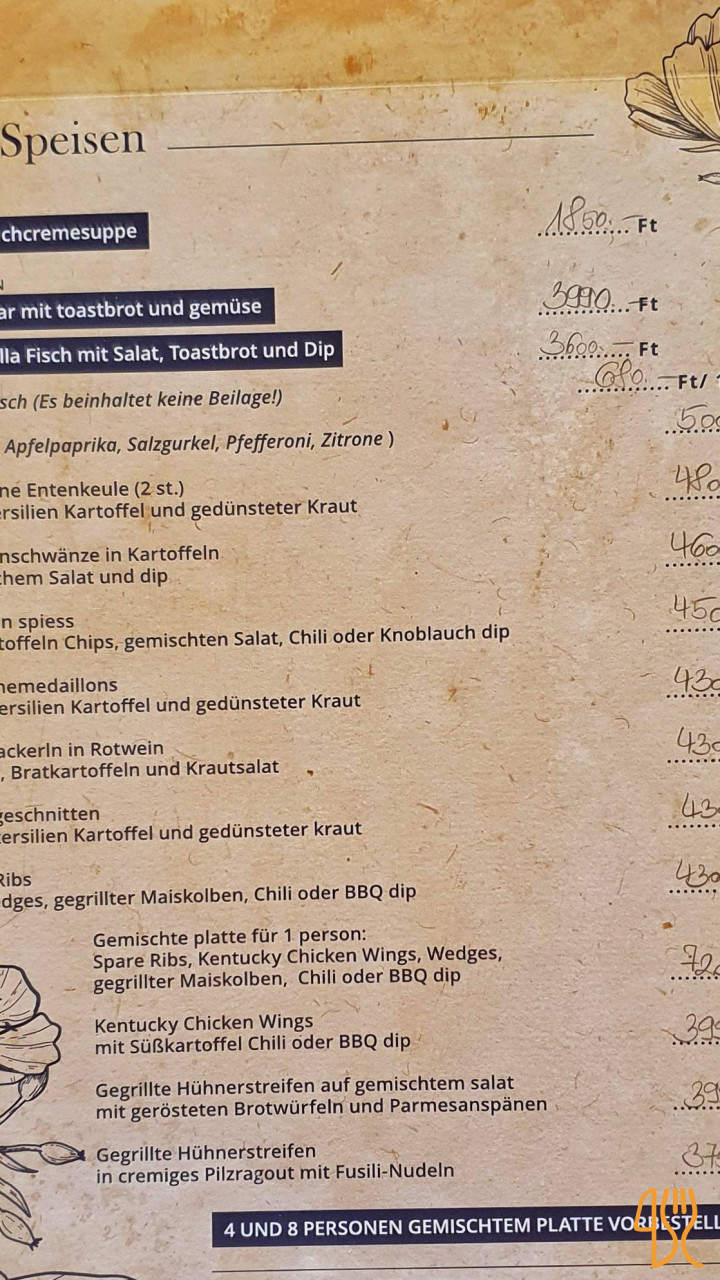 Speisen
chcremesuppe 1850.– Ft
N
ar mit toastbrot und gemüse 3990.– Ft
lla Fisch mit Salat, Toastbrot und Dip 3600.– Ft
sch (Es beinhaltet keine Beilage!) 680.– Ft/ 1
Apfelpaprika, Salzgurkel, Pfefferoni, Zitrone ) 500
ne Entenkeule (2 st.) 480
ersilien Kartoffel und gedünsteter Kraut
nschwänze in Kartoffeln 460
chem Salat und dip
n spiess 450
toffeln Chips, gemischten Salat, Chili oder Knoblauch dip
nemedaillons 430
ersilien Kartoffel und gedünsteter Kraut
ackerln in Rotwein 430
, Bratkartoffeln und Krautsalat
geschnitten 43
ersilien Kartoffel und gedünsteter kraut
Ribs 430
dges, gegrillter Maiskolben, Chili oder BBQ dip
Gemischte platte für 1 person:
Spare Ribs, Kentucky Chicken Wings, Wedges, 720
gegrillter Maiskolben, Chili oder BBQ dip
Kentucky Chicken Wings 399
mit Süßkartoffel Chili oder BBQ dip
Gegrillte Hühnerstreifen auf gemischtem salat 39
mit gerösteten Brotwürfeln und Parmesanspänen
Gegrillte Hühnerstreifen 37
in cremiges Pilzragout mit Fusili-Nudeln
4 UND 8 PERSONEN GEMISCHTEM PLATTE VORBESTELL